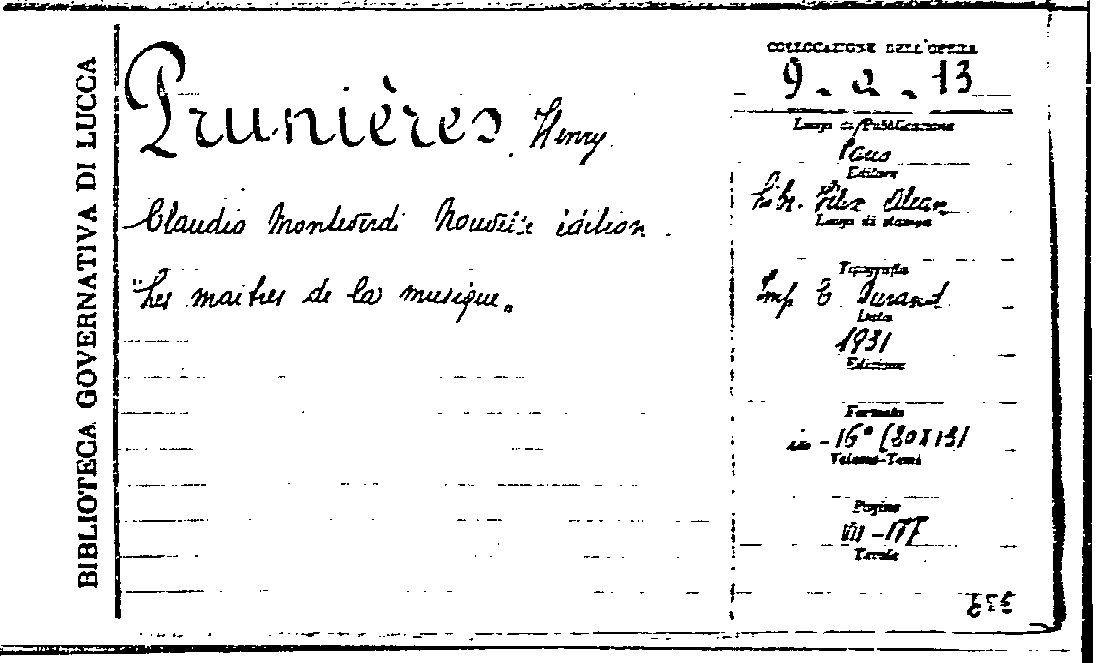 BIBLIOTECA GOVERNATIVA DI LUCCA
Prunières, Henry
Claudio Monteverdi Nouvelle édition.
"Les maitres de la musique„
COLLOCAZIONE DELL'OPERA
9 - a - 13
Luogo di Pubblicazione
Paris
Editore
Libr. Félix Alcan
Luogo di stampa
Tipografia
Imp E Durand
Data
1931
Edizione
Formato
in - 16° (20X13)
Volume-Tomi
Pagine
VIII - 177
Tavole